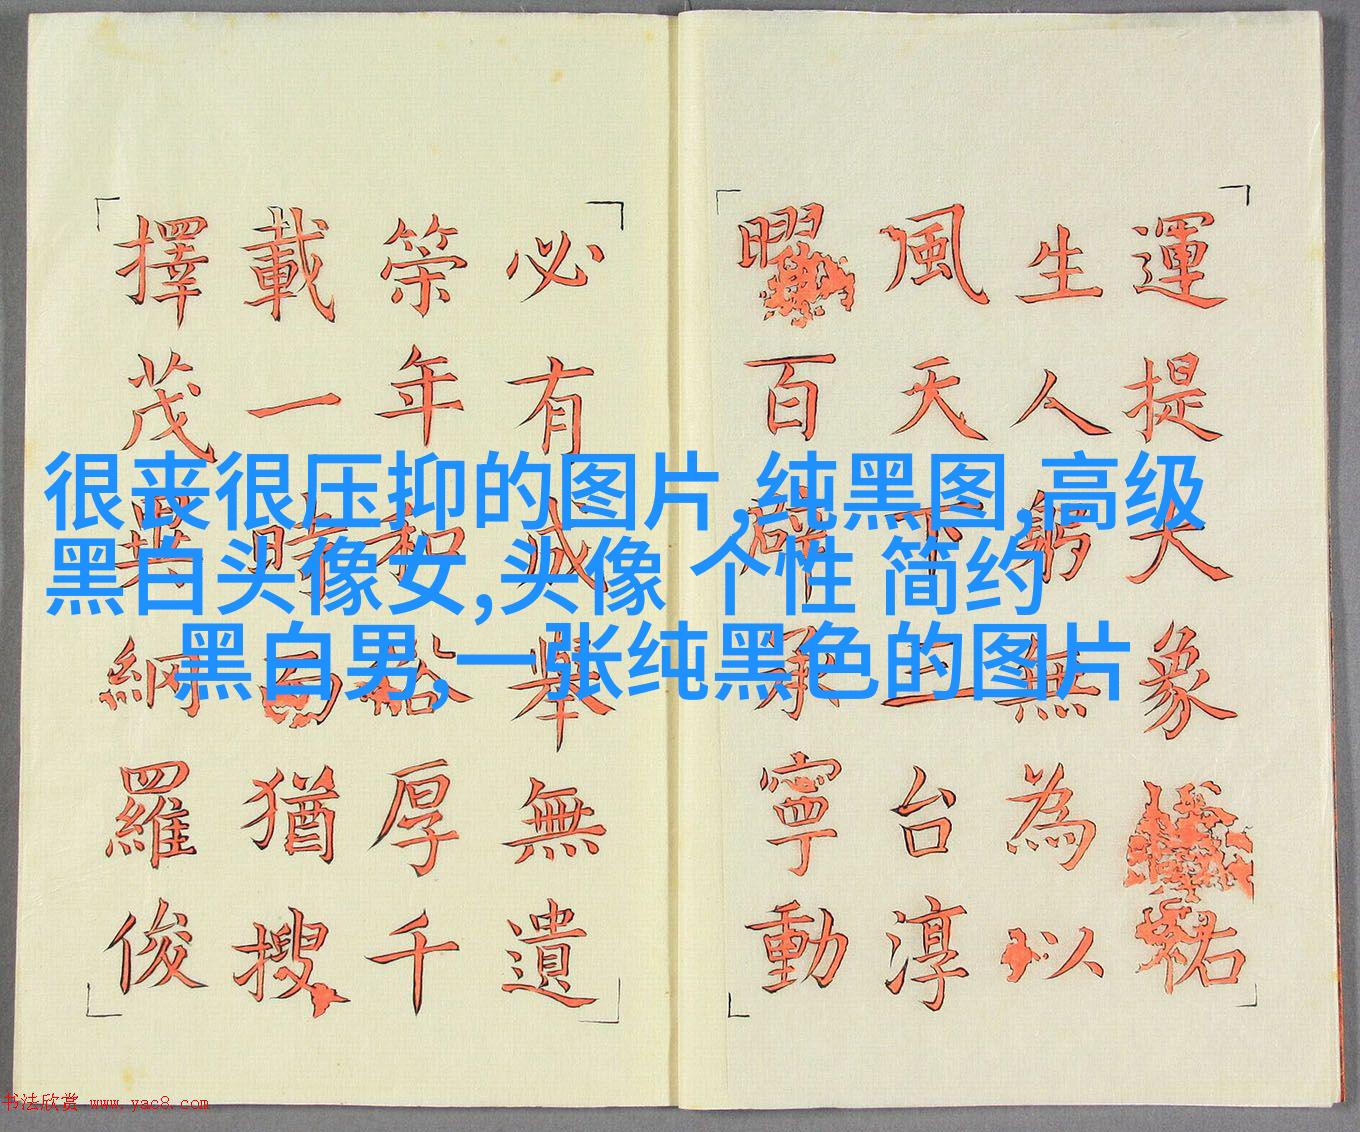 很丧很压抑的图片,纯黑图,高级
黑白头像女,头像 个性 简约
黑白男,一张纯黑色的图片
運提大象祐
生人躬無為以
風天下台淳
曜百辟承寧動
必有咸舉無遺
年和裕厚千
載一時而猶搜
擇茂異網羅俊
书法欣赏 www.yac8.com